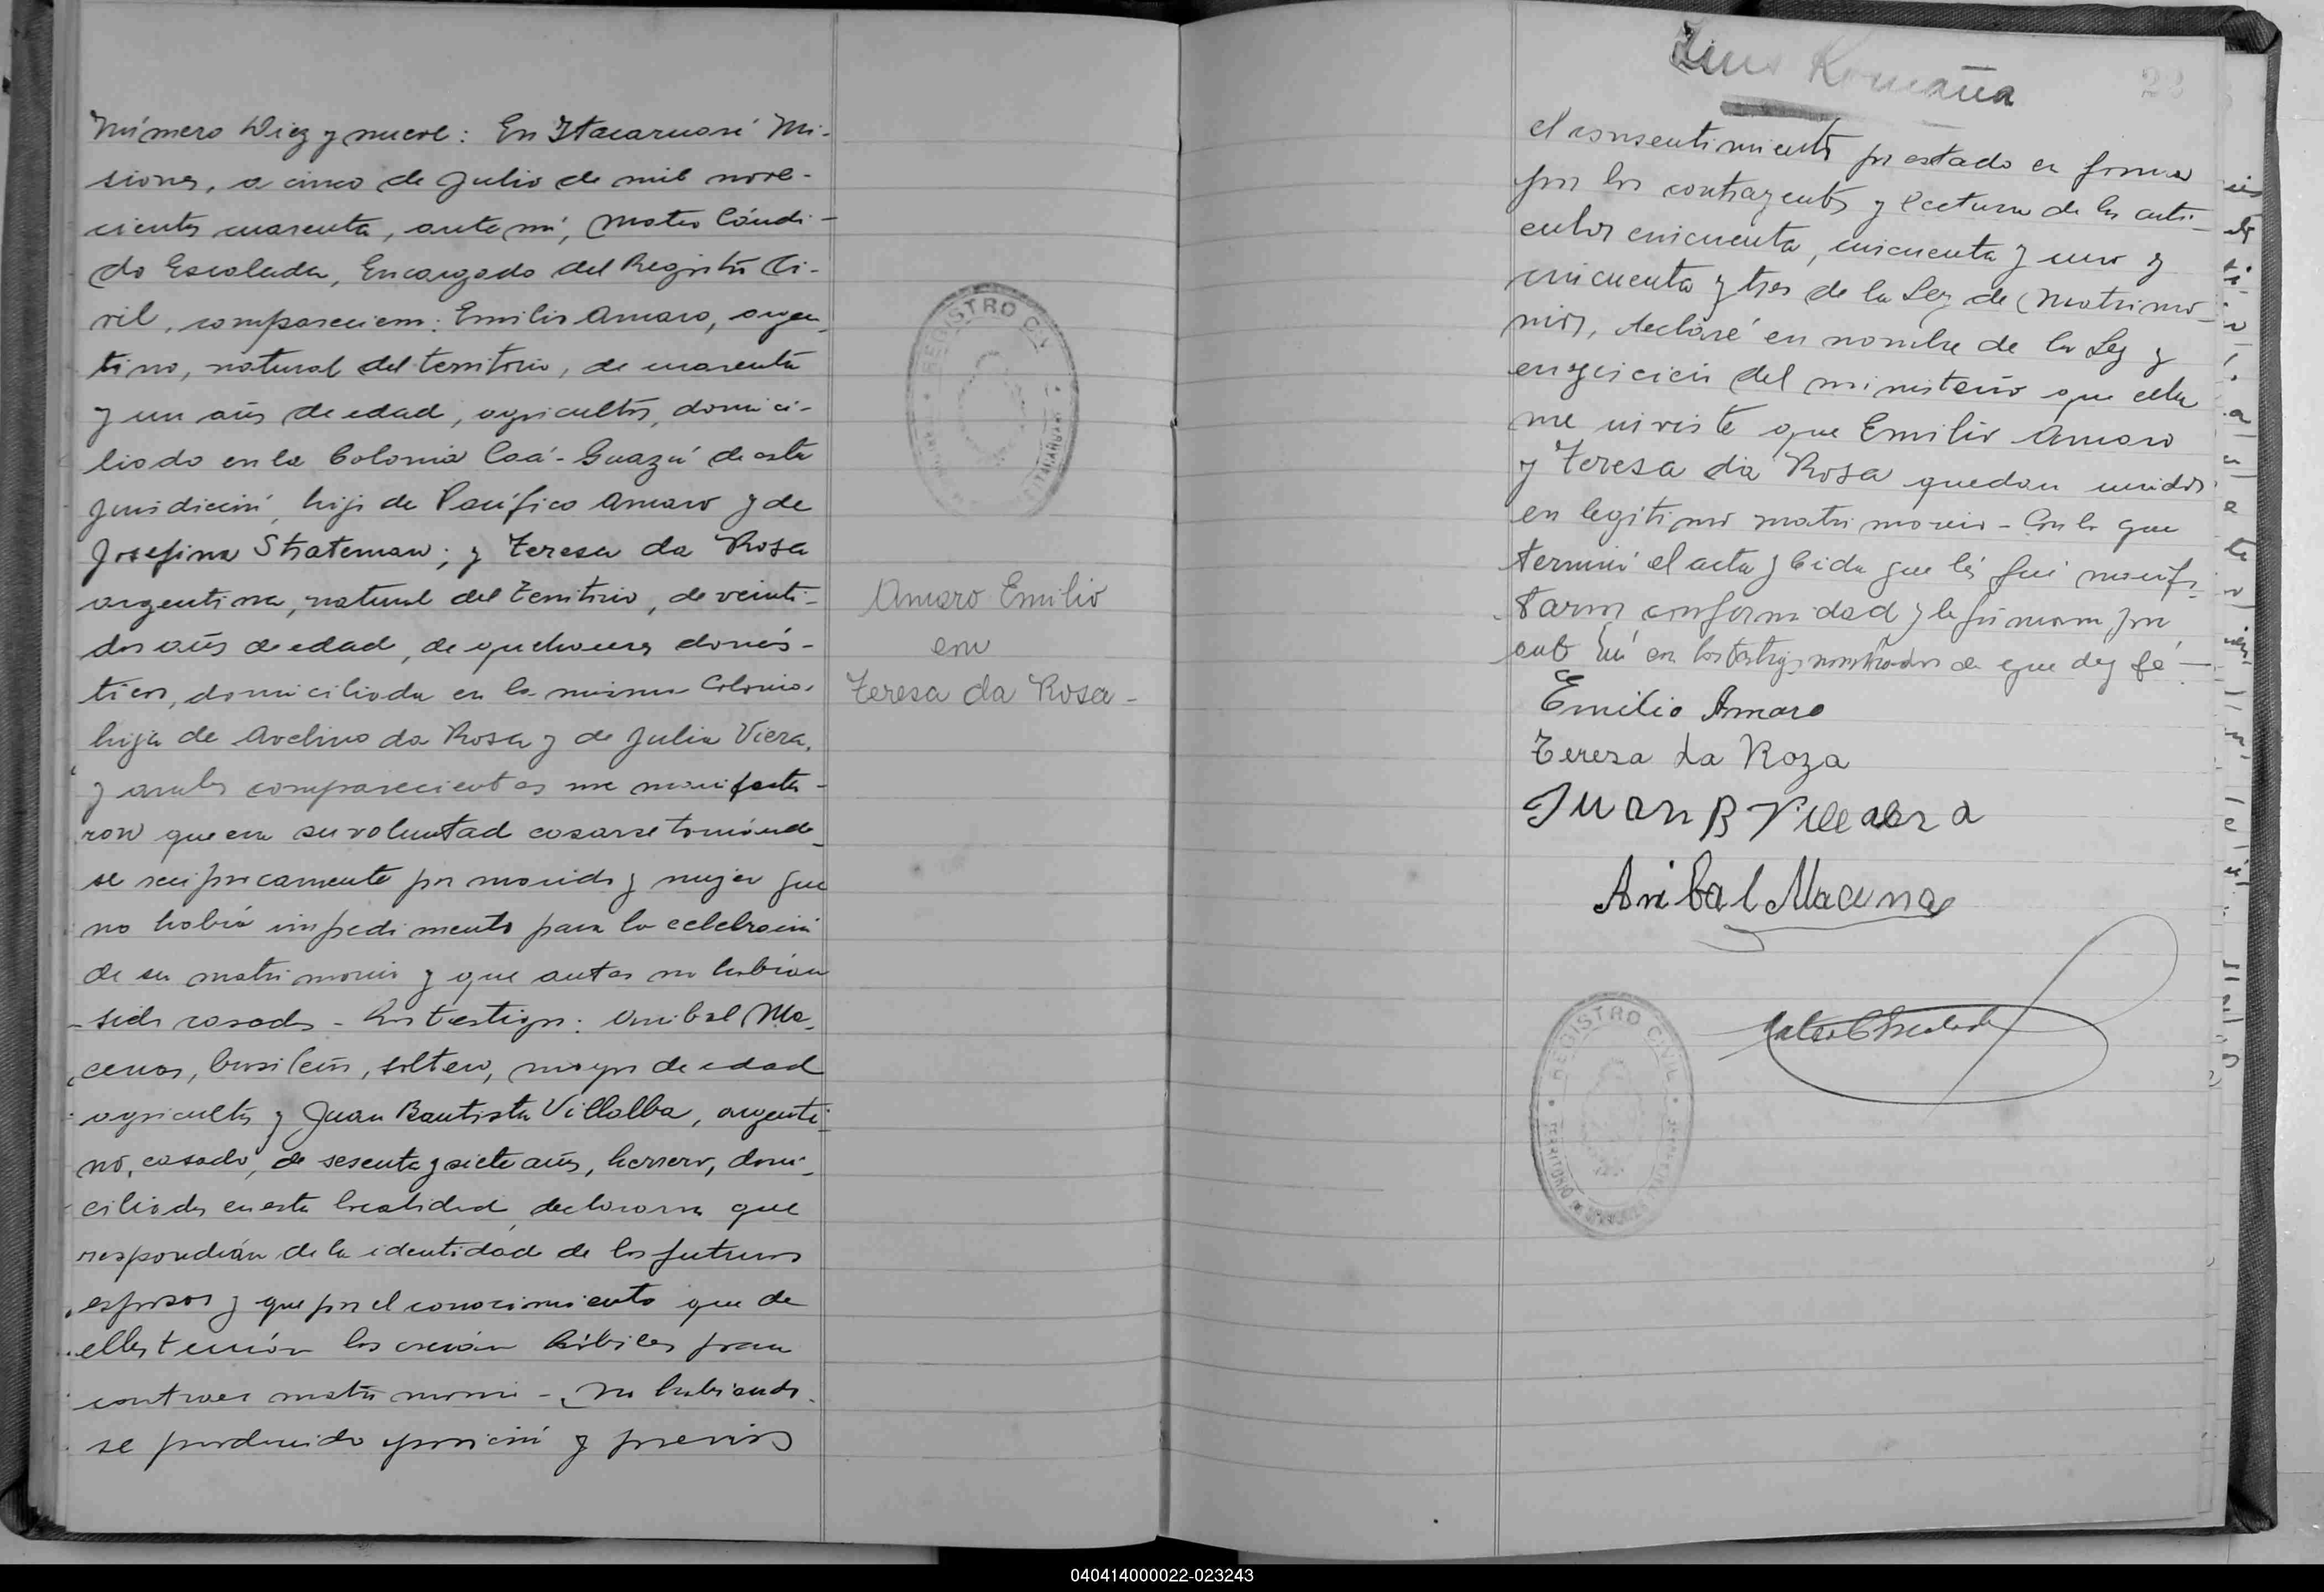 Número Diez y nueve: En Itacaruaré Mi-
siones, a cinco de Julio de mil nove-
cientos cuarenta, ante mí, Mateo Cándi-
do Escalada, Encargado del Registro Ci-
vil, comparecieron: Emilio Amaro, argen-
tino, natural del territorio, de cuarenta
y un años de edad, agricultor, domici-
liado en la Colonia Caá-Guazú de esta
Jurisdicción, hijo de Pacífico Amaro y de
Josefina Strateman; y Teresa da Rosa
argentina, natural del Territorio, de veinti-
dos años de edad, de quehaceres domés-
ticos, domiciliada en la misma Colonia,
hija de Avelino da Rosa y de Julia Viera,
y ambos comparecientes me manifesta-
ron que era su voluntad casarse tomándo-
se recíprocamente por marido y mujer que
no había impedimento para la celebración
de su matrimonio y que antes no habían
sido casados - Los testigos: Anibal Ma-
cenas, brasileño, soltero, mayor de edad
agricultor y Juan Bautista Villalba, argenti-
no, casado, de sesenta y siete años, herrero, domi-
ciliados en esta localidad, declararon que
respondían de la identidad de los futuros
esposos y que por el conocimiento que de
ellos tenían los creían hábiles para
contraer matrimonio - No habiendo-
se producido oposición y previos
REGISTRO CIVIL
Amaro Emilio
con
Teresa da Rosa -
Romaña
22
el consentimiento prestado en forma
por los contrayentes y lectura de los artí-
culos cincuenta, cincuenta y uno y
cincuenta y tres de la Ley de Matrimo-
nios, declaré en nombre de la Ley y
en ejercicio del ministerio que ella
me inviste que Emilio Amaro
y Teresa da Rosa quedan unidos
en legítimo matrimonio - Con lo que
terminó el acta y leida que les fué manifes-
taron conformidad y la firmaron por
ante mí con los testigos nombrados de que doy fé -
Emilio Amaro
Teresa da Roza
Juan B Villalba
Anibal Macena
Mateo C Escalada
REGISTRO CIVIL
TERRITORIO DE MISIONES